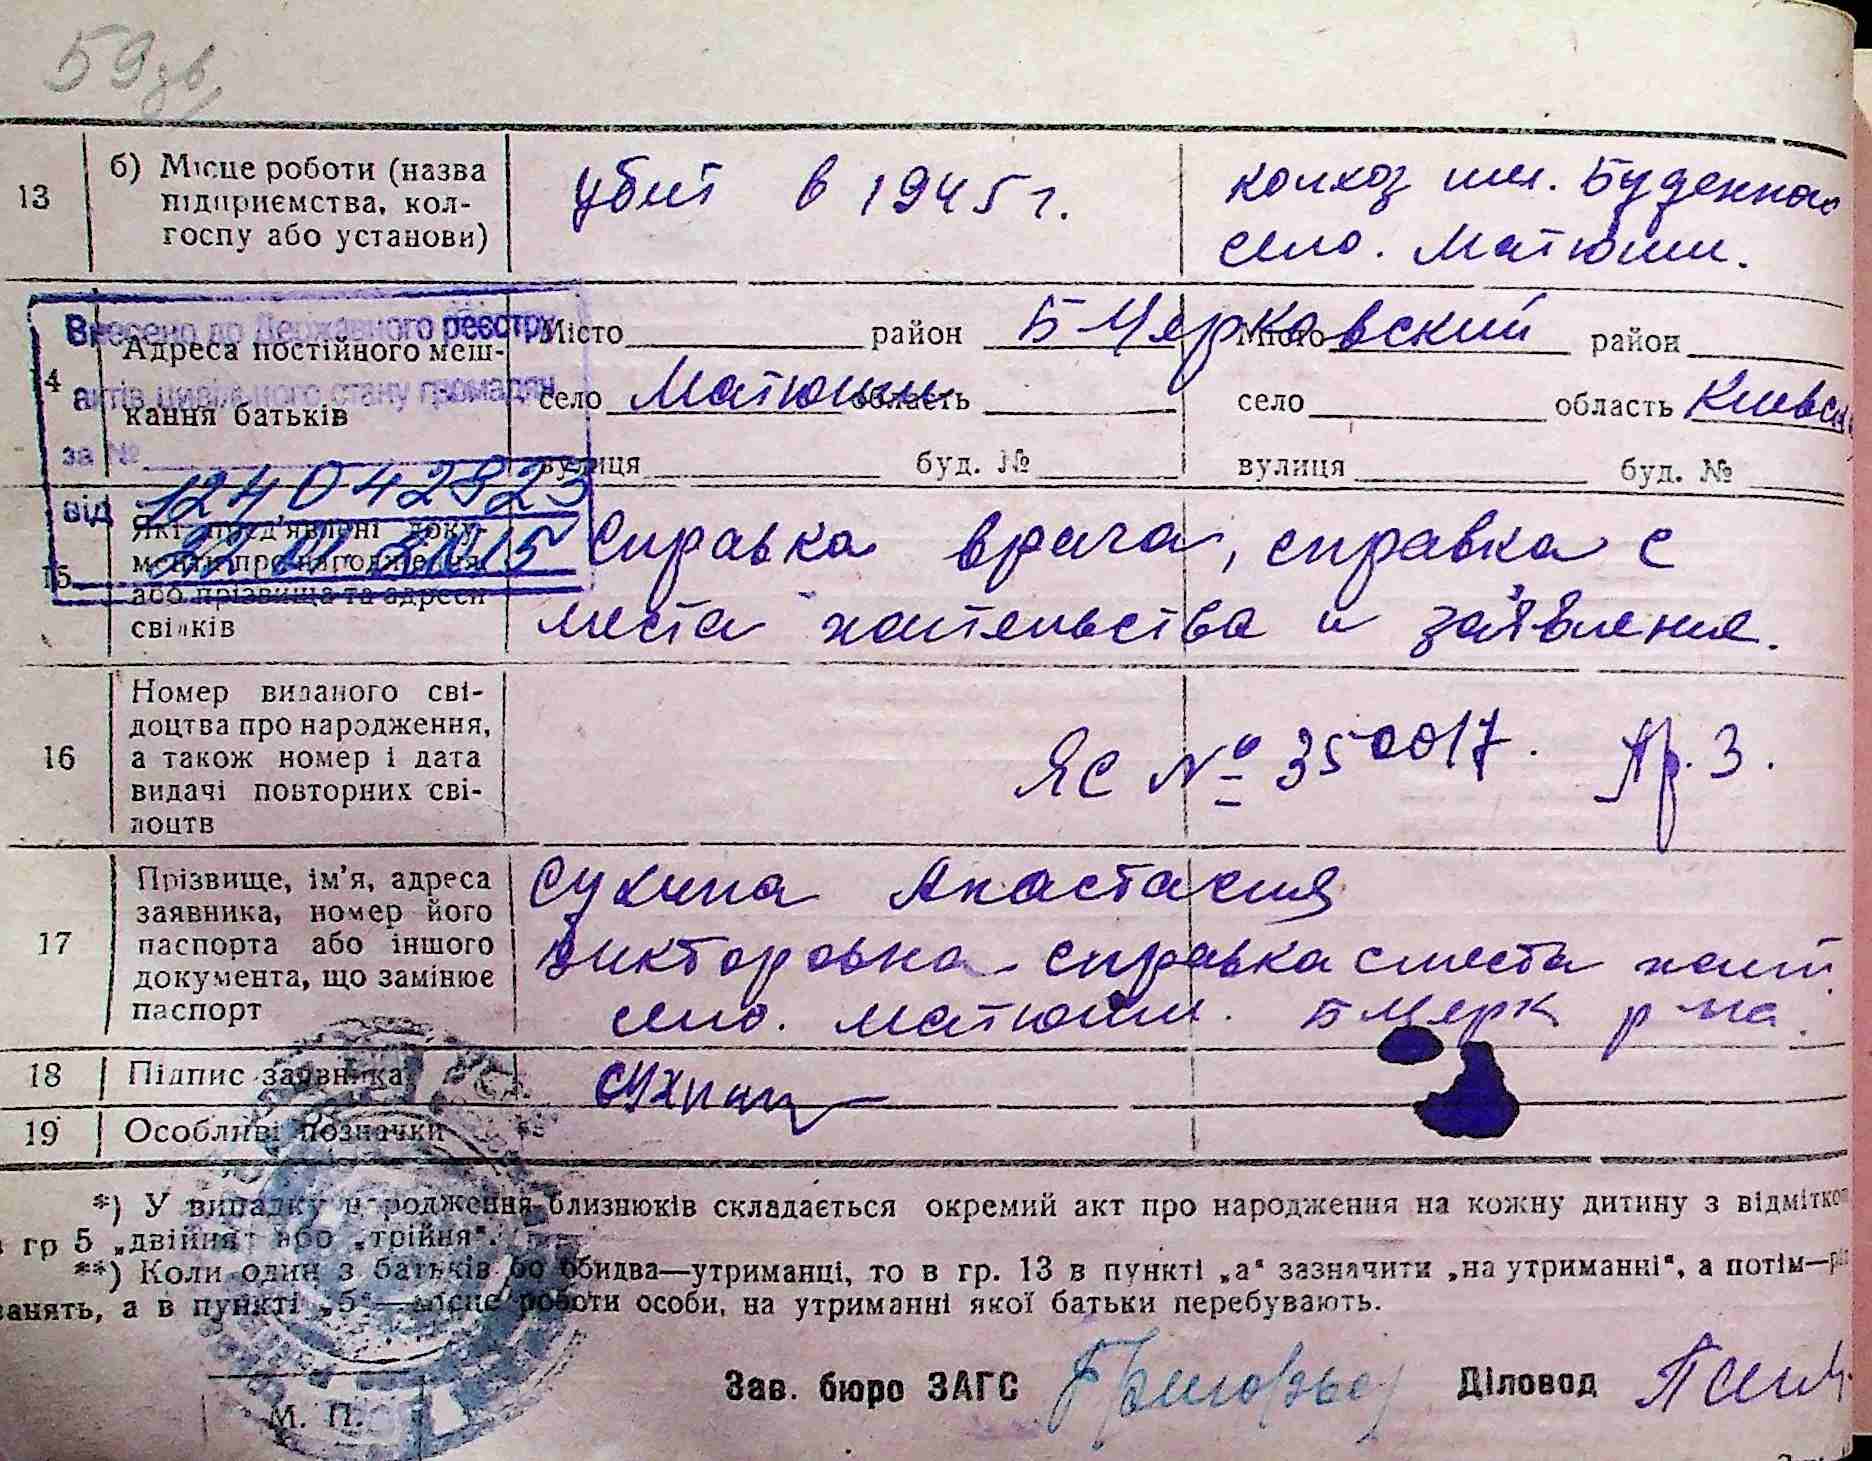 59 зв
13 б) Місце роботи (назва підприємства, колгоспу або установи)
убит в 1945 г.
колхоз им. Буденного
село. Матюши.
Внесено до Державного реєстру
актів цивільного стану громадян
за № 12404 2823
від 22 01 2015
4 Адреса постійного мешкання батьків
Місто район Б Церковский Місто район
село Матюши область село область Киевск
вулиця буд. № вулиця буд. №
15 Які пред'явлені документи про народження або прізвища та адреси свідків
Справка врача, справка с
места жительства и заявление.
16 Номер виданого свідоцтва про народження, а також номер і дата видачі повторних свідоцтв
ЯС № 350017. Пр. 3.
17 Прізвище, ім'я, адреса заявника, номер його паспорта або іншого документа, що замінює паспорт
Сухина Анастасия
Викторовна справка с места жит.
село. Матюши. Б Церк р-на.
18 Підпис заявника
Сухина
19 Особливі позначки
*) У випадку народження близнюків складається окремий акт про народження на кожну дитину з відмітко
гр 5 „двійня" або „трійня".
**) Коли один з батьків бо обидва—утриманці, то в гр. 13 в пункті „а" зазначити „на утриманні", а потім—
анять, а в пункті „б"—місце роботи особи, на утриманні якої батьки перебувають.
Зав. бюро ЗАГС Діловод
М. П.